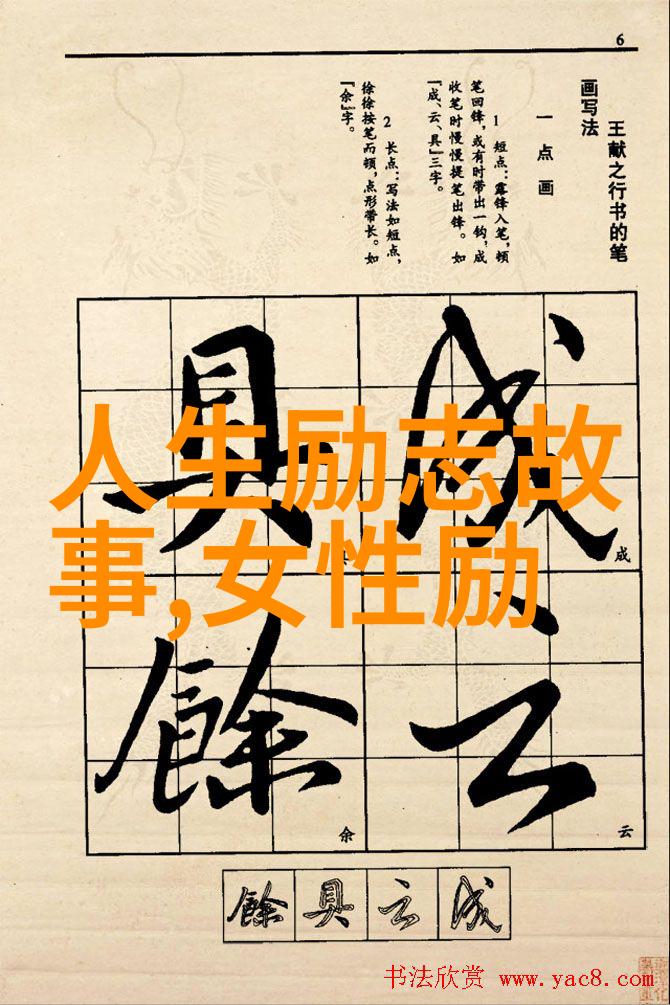 6
王献之行书的笔
画写法
一点画
1 短点：露锋入笔，顿
笔回锋，或有时带出一钩，成
收笔时慢慢提笔出锋。如
“成、云、具”三字。
2 长点：写法如短点，
徐徐按笔而顿，点形带长。如
“余”字。
成
具
云
餘
成
具
云
余
人生励志故
事,女性励
餘具云成
书法欣赏 www.yac8.com